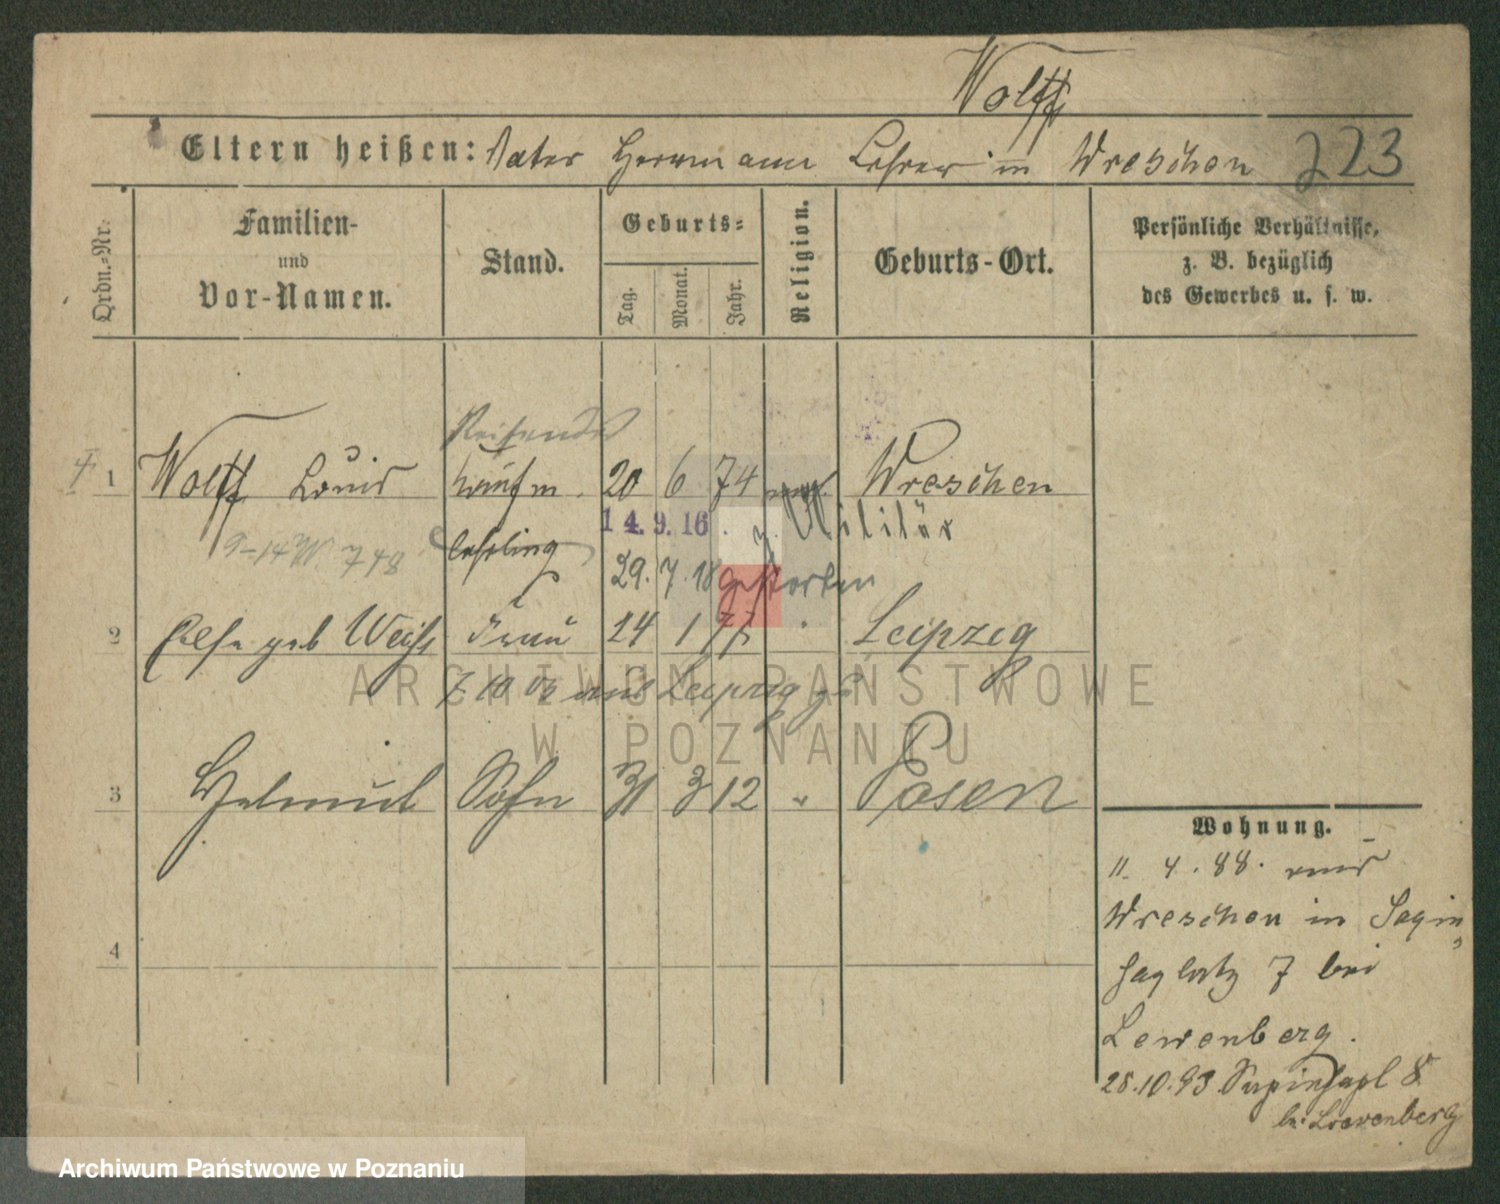 Wolff
Eltern heißen: Vater Herrmann Lehrer in Wreschen 223
Ordn.-Nr. Familien- und Vor-Namen. Stand. Geburts- Tag. Monat. Jahr. Religion. Geburts-Ort. Persönliche Verhältnisse, z. B. bezüglich des Gewerbes u. s. w.
Reisender
1 Wolff Louis Kaufm. 20 6 74 mos. Wreschen
14.9.16 z. Militär
lehrling
29.7.18 gestorben
2 Else geb Weiss Frau 24 1 77 " Leipzig
aus Leipzig
3 Helmut Sohn 31 3 12 " Posen
4
Wohnung.
11. 4. 88. aus
Wreschen in
7 bei
Lewenberg.
28.10.93 8
bei Loewenberg
ARCHIWUM PAŃSTWOWE
W POZNANIU
Archiwum Państwowe w Poznaniu